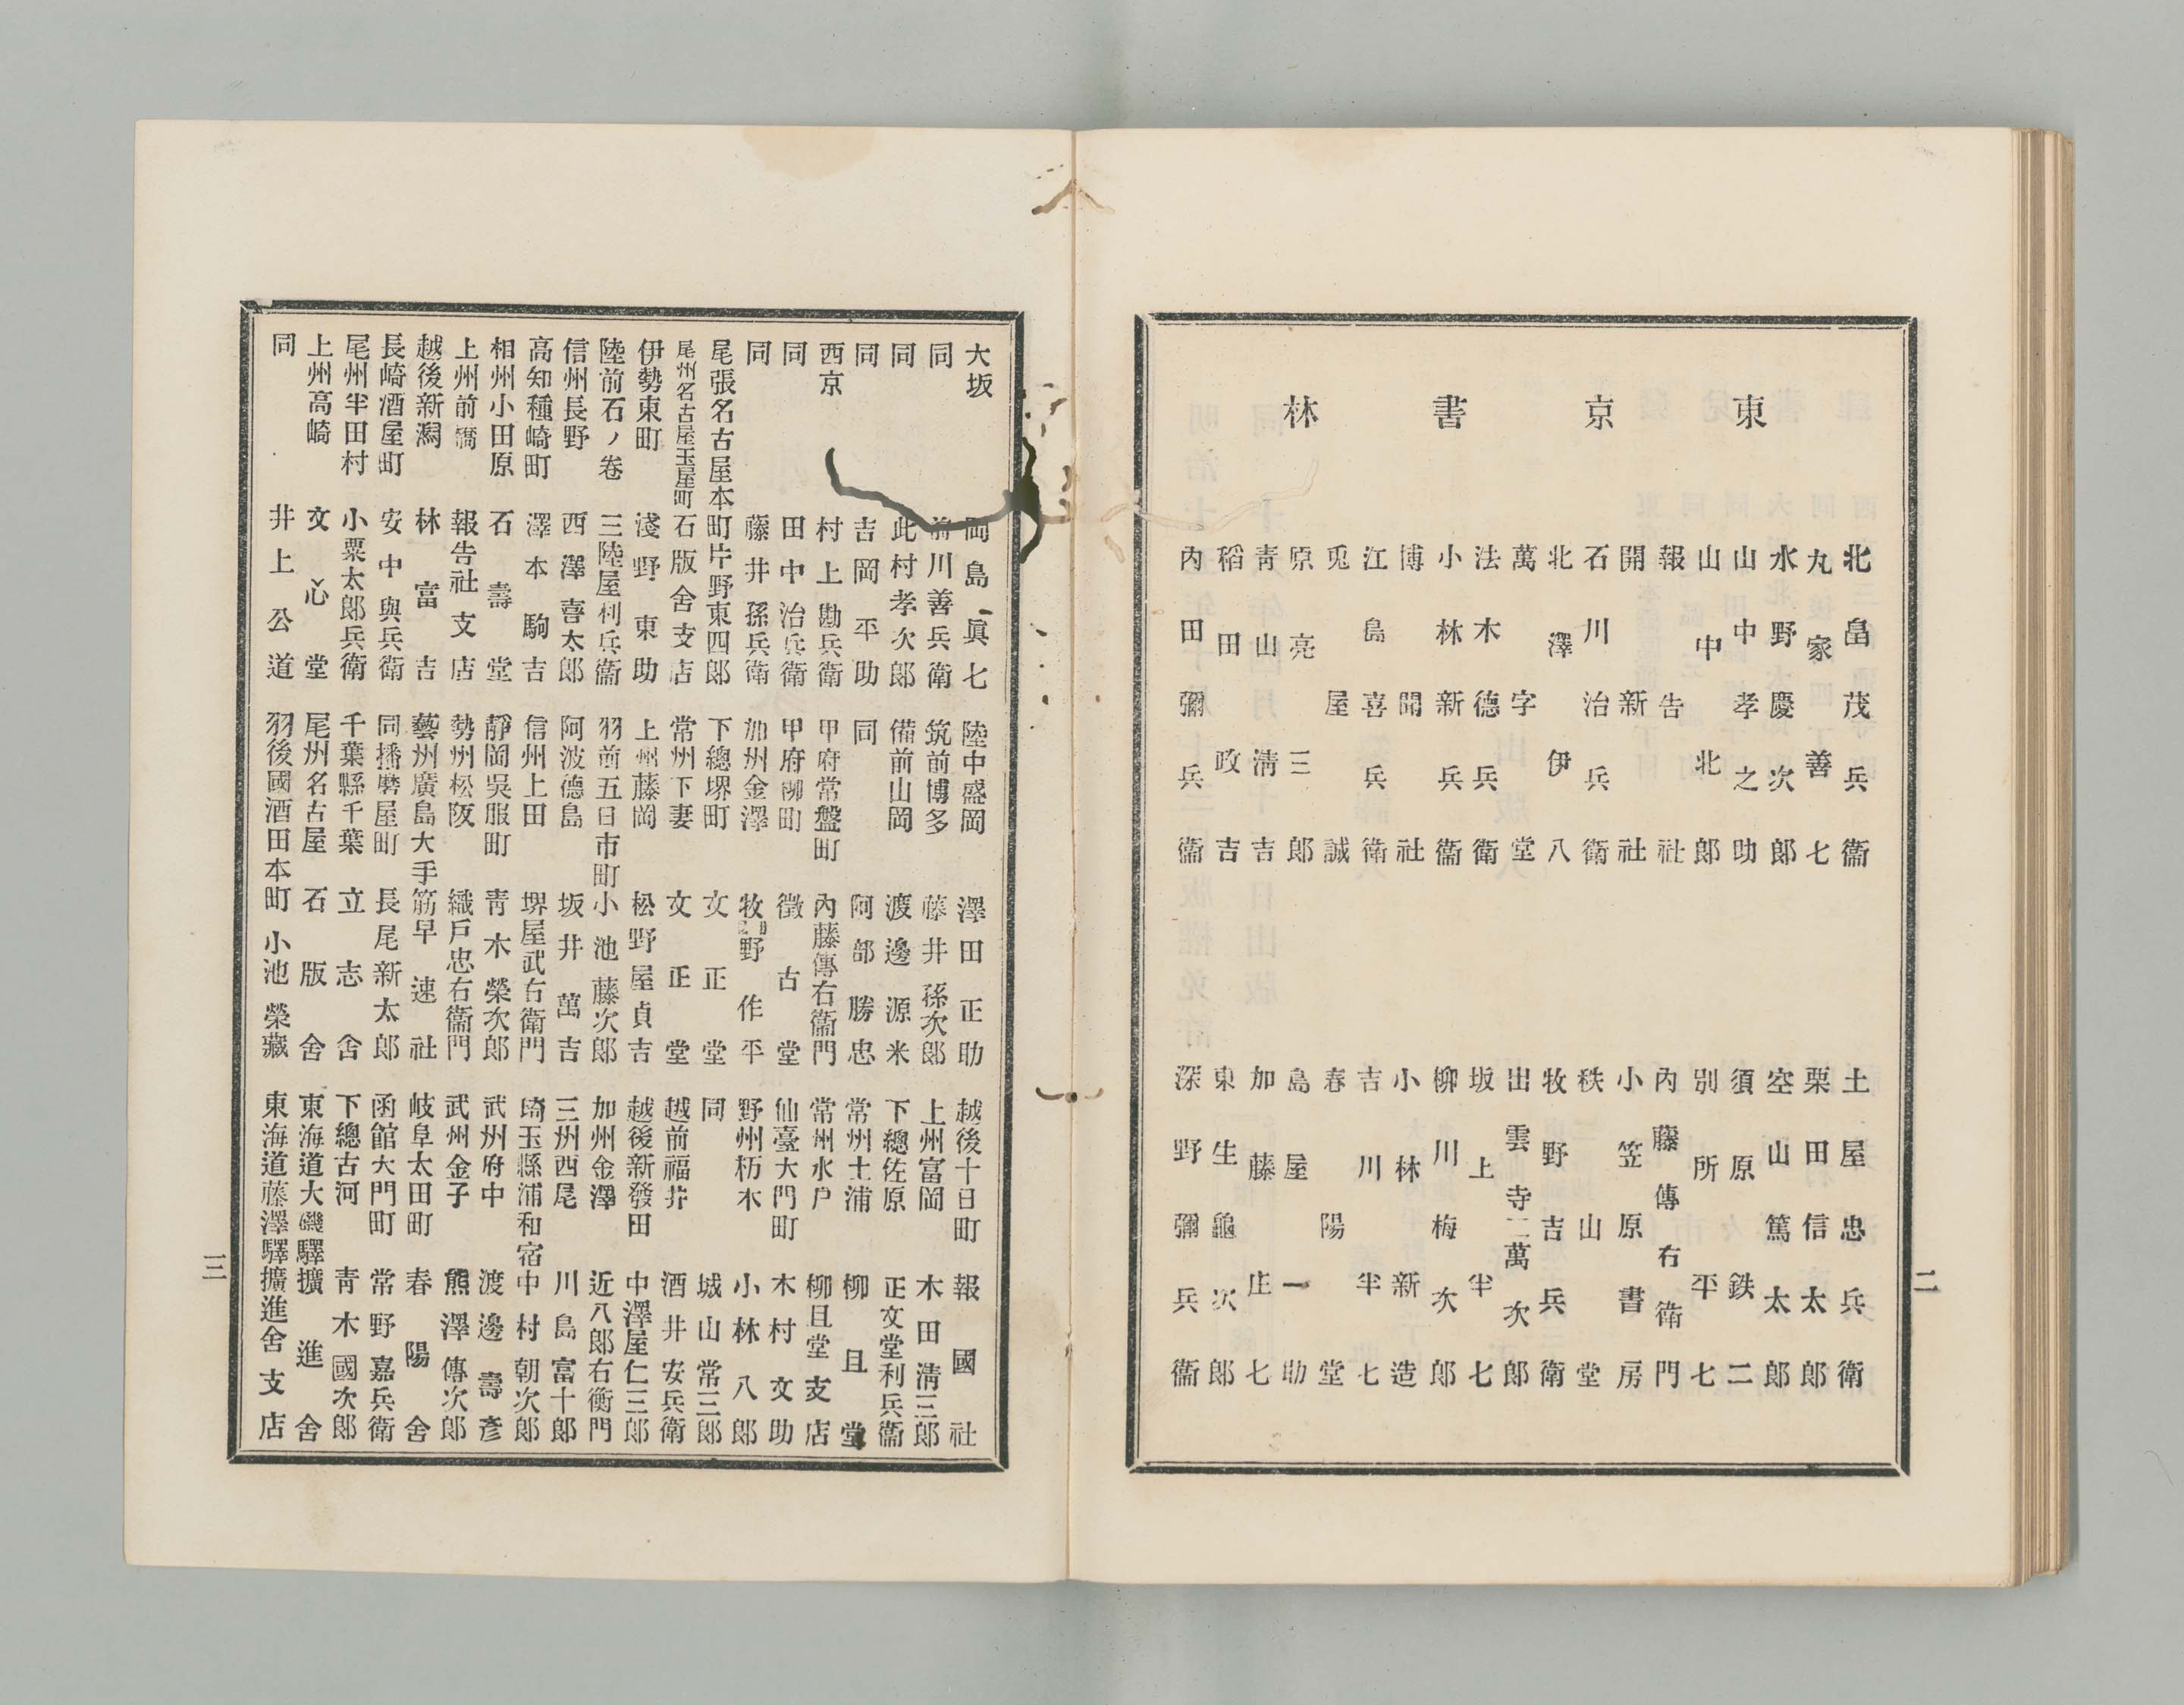 東京書林
北畠茂兵衞
丸家善七
水野慶次郎
山中孝之助
山中北郎
報告社
開新社
石川治兵衞
北澤伊八
萬字堂
法木德兵衞
小林新兵衞
博聞社
江島喜兵衞
兎屋誠
原亮三郎
靑山淸吉
稻田政吉
內田彌兵衞
土屋忠兵衞
栗田信太郎
空山篤太郎
須原鉄二
別所平七
內藤傳右衞門
小笠原書房
秩山堂
牧野吉兵衞
出雲寺萬次郎
坂上半七
柳川梅次郎
小林新造
吉川半七
春陽堂
島屋一助
加藤庄七
東生龜次郎
深野彌兵衞
二
大坂 岡島眞七
同 前川善兵衞
同 此村孝次郎
同 吉岡平助
西京 村上勘兵衞
同 田中治兵衞
同 藤井孫兵衞
尾張名古屋本町 片野東四郎
尾州名古屋玉屋町 石版舍支店
伊勢東町 淺野東助
陸前石ノ卷 三陸屋利兵衞
信州長野 西澤喜太郎
高知種崎町 澤本駒吉
相州小田原 石壽堂
上州前橋 報告社支店
越後新潟 林富吉
長崎酒屋町 安中與兵衞
尾州半田村 小栗太郎兵衞
上州高崎 文心堂
同 井上公道
陸中盛岡 澤田正助
筑前博多 藤井孫次郎
備前山岡 渡邊源米
同 阿部勝忠
甲府常盤町 內藤傳右衞門
甲府柳町 徵古堂
加州金澤 牧野作平
下總堺町 文正堂
常州下妻 文正堂
上州藤岡 松野屋貞吉
羽前五日市町 小池藤次郎
阿波德島 坂井萬吉
信州上田 堺屋武右衞門
靜岡吳服町 靑木榮次郎
勢州松阪 織戶忠右衞門
藝州廣島大手筋 早速社
同播磨屋町 長尾新太郎
千葉縣千葉 立志舍
尾州名古屋 石版舍
羽後國酒田本町 小池榮藏
越後十日町 報國社
上州富岡 木田淸三郎
下總佐原 正文堂利兵衞
常州土浦 柳且堂
常州水戶 柳且堂支店
仙臺大門町 木村文助
野州栃木 小林八郎
同 城山常三郎
越前福井 酒井安兵衞
越後新發田 中澤屋仁三郎
加州金澤 近八郎右衞門
三州西尾 川島富十郎
埼玉縣浦和宿 中村朝次郎
武州府中 渡邊壽彥
武州金子 熊澤傳次郎
岐阜太田町 春陽舍
函館大門町 常野嘉兵衞
下總古河 靑木國次郎
東海道大磯驛 擴進舍
東海道藤澤驛 擴進舍支店
三